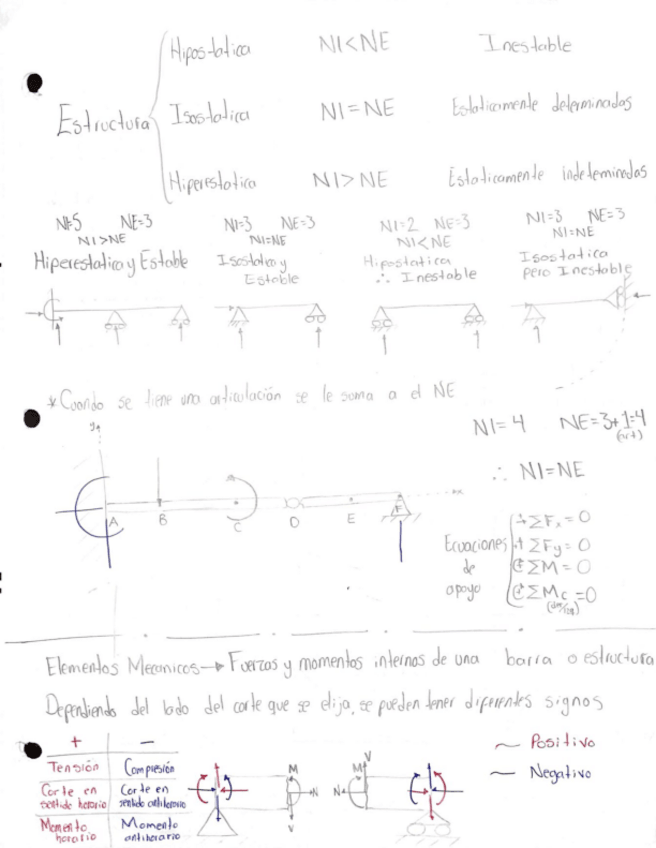 Hipostatica NI<NE Inestable
Estructura Isostatica NI=NE Estaticamente determinadas
Hiperestatica NI>NE Estaticamente indeterminadas
NI=5 NE=3 NI=3 NE=3 NI=2 NE=3 NI=3 NE=3
NI>NE NI=NE NI<NE NI=NE
Hiperestatica y Estable Isostatica y Estable Hipostatica ∴ Inestable Isostatica pero Inestable
* Cuando se tiene una articulación se le suma a el NE
NI=4 NE=3+1=4
(art)
∴ NI=NE
y
x
A B C D E F
Ecuaciones de apoyo
+ΣFx=0
+ΣFy=0
+ΣM=0
+ΣMc=0
Elementos Mecanicos→Fuerzas y momentos internos de una barra o estructura
Dependiendo del lado del corte que se elija, se pueden tener diferentes signos
+ −
Tensión Compresión
Corte en sentido horario Corte en sentido antihorario
Momento horario Momento antihorario
M N V
V M N
~ Positivo
~ Negativo